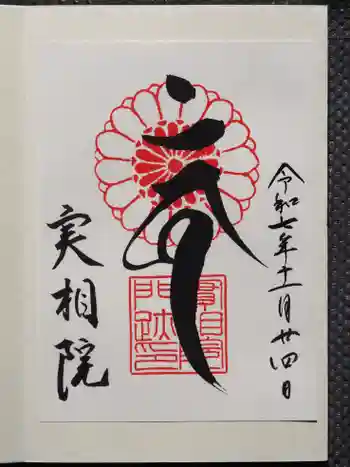 令和七年十一月廿四日
実相院
門跡印